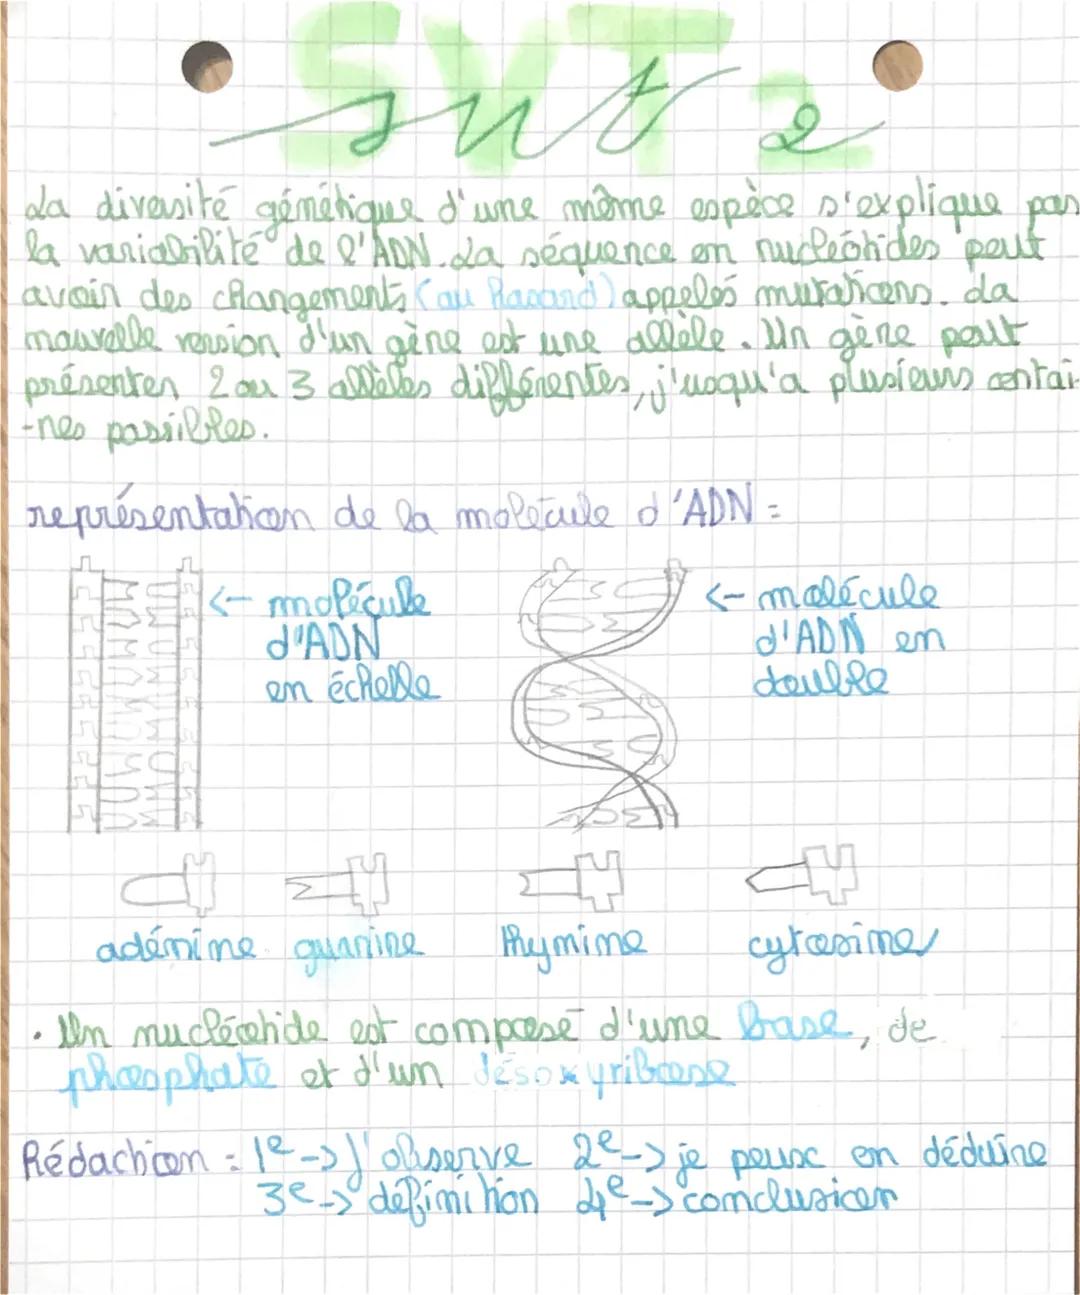 SVT 2
svt 2
La diversité génétique d'une même espèce s'explique par
la variabilité de l'ADN. La séquence en nucléotides peut
avoir des changements (au hasard) appelés mutations. La
nouvelle version d'un gène est une allèle. Un gène peut
présenter 2 ou 3 allèles différentes, j'usqu'a plusieurs centai-
-nes possibles.
représentation de la molécule d'ADN =
<- molécule
d'ADN
en échelle
<- molécule
d'ADN en
double
adénine guanine thymine cytosine
• Un nucléotide est composé d'une base, de
phosphate et d'un désoxyribose
Rédaction = 1e -> J'observe 2e -> je peux en déduire
3e -> définition 4e -> conclusion